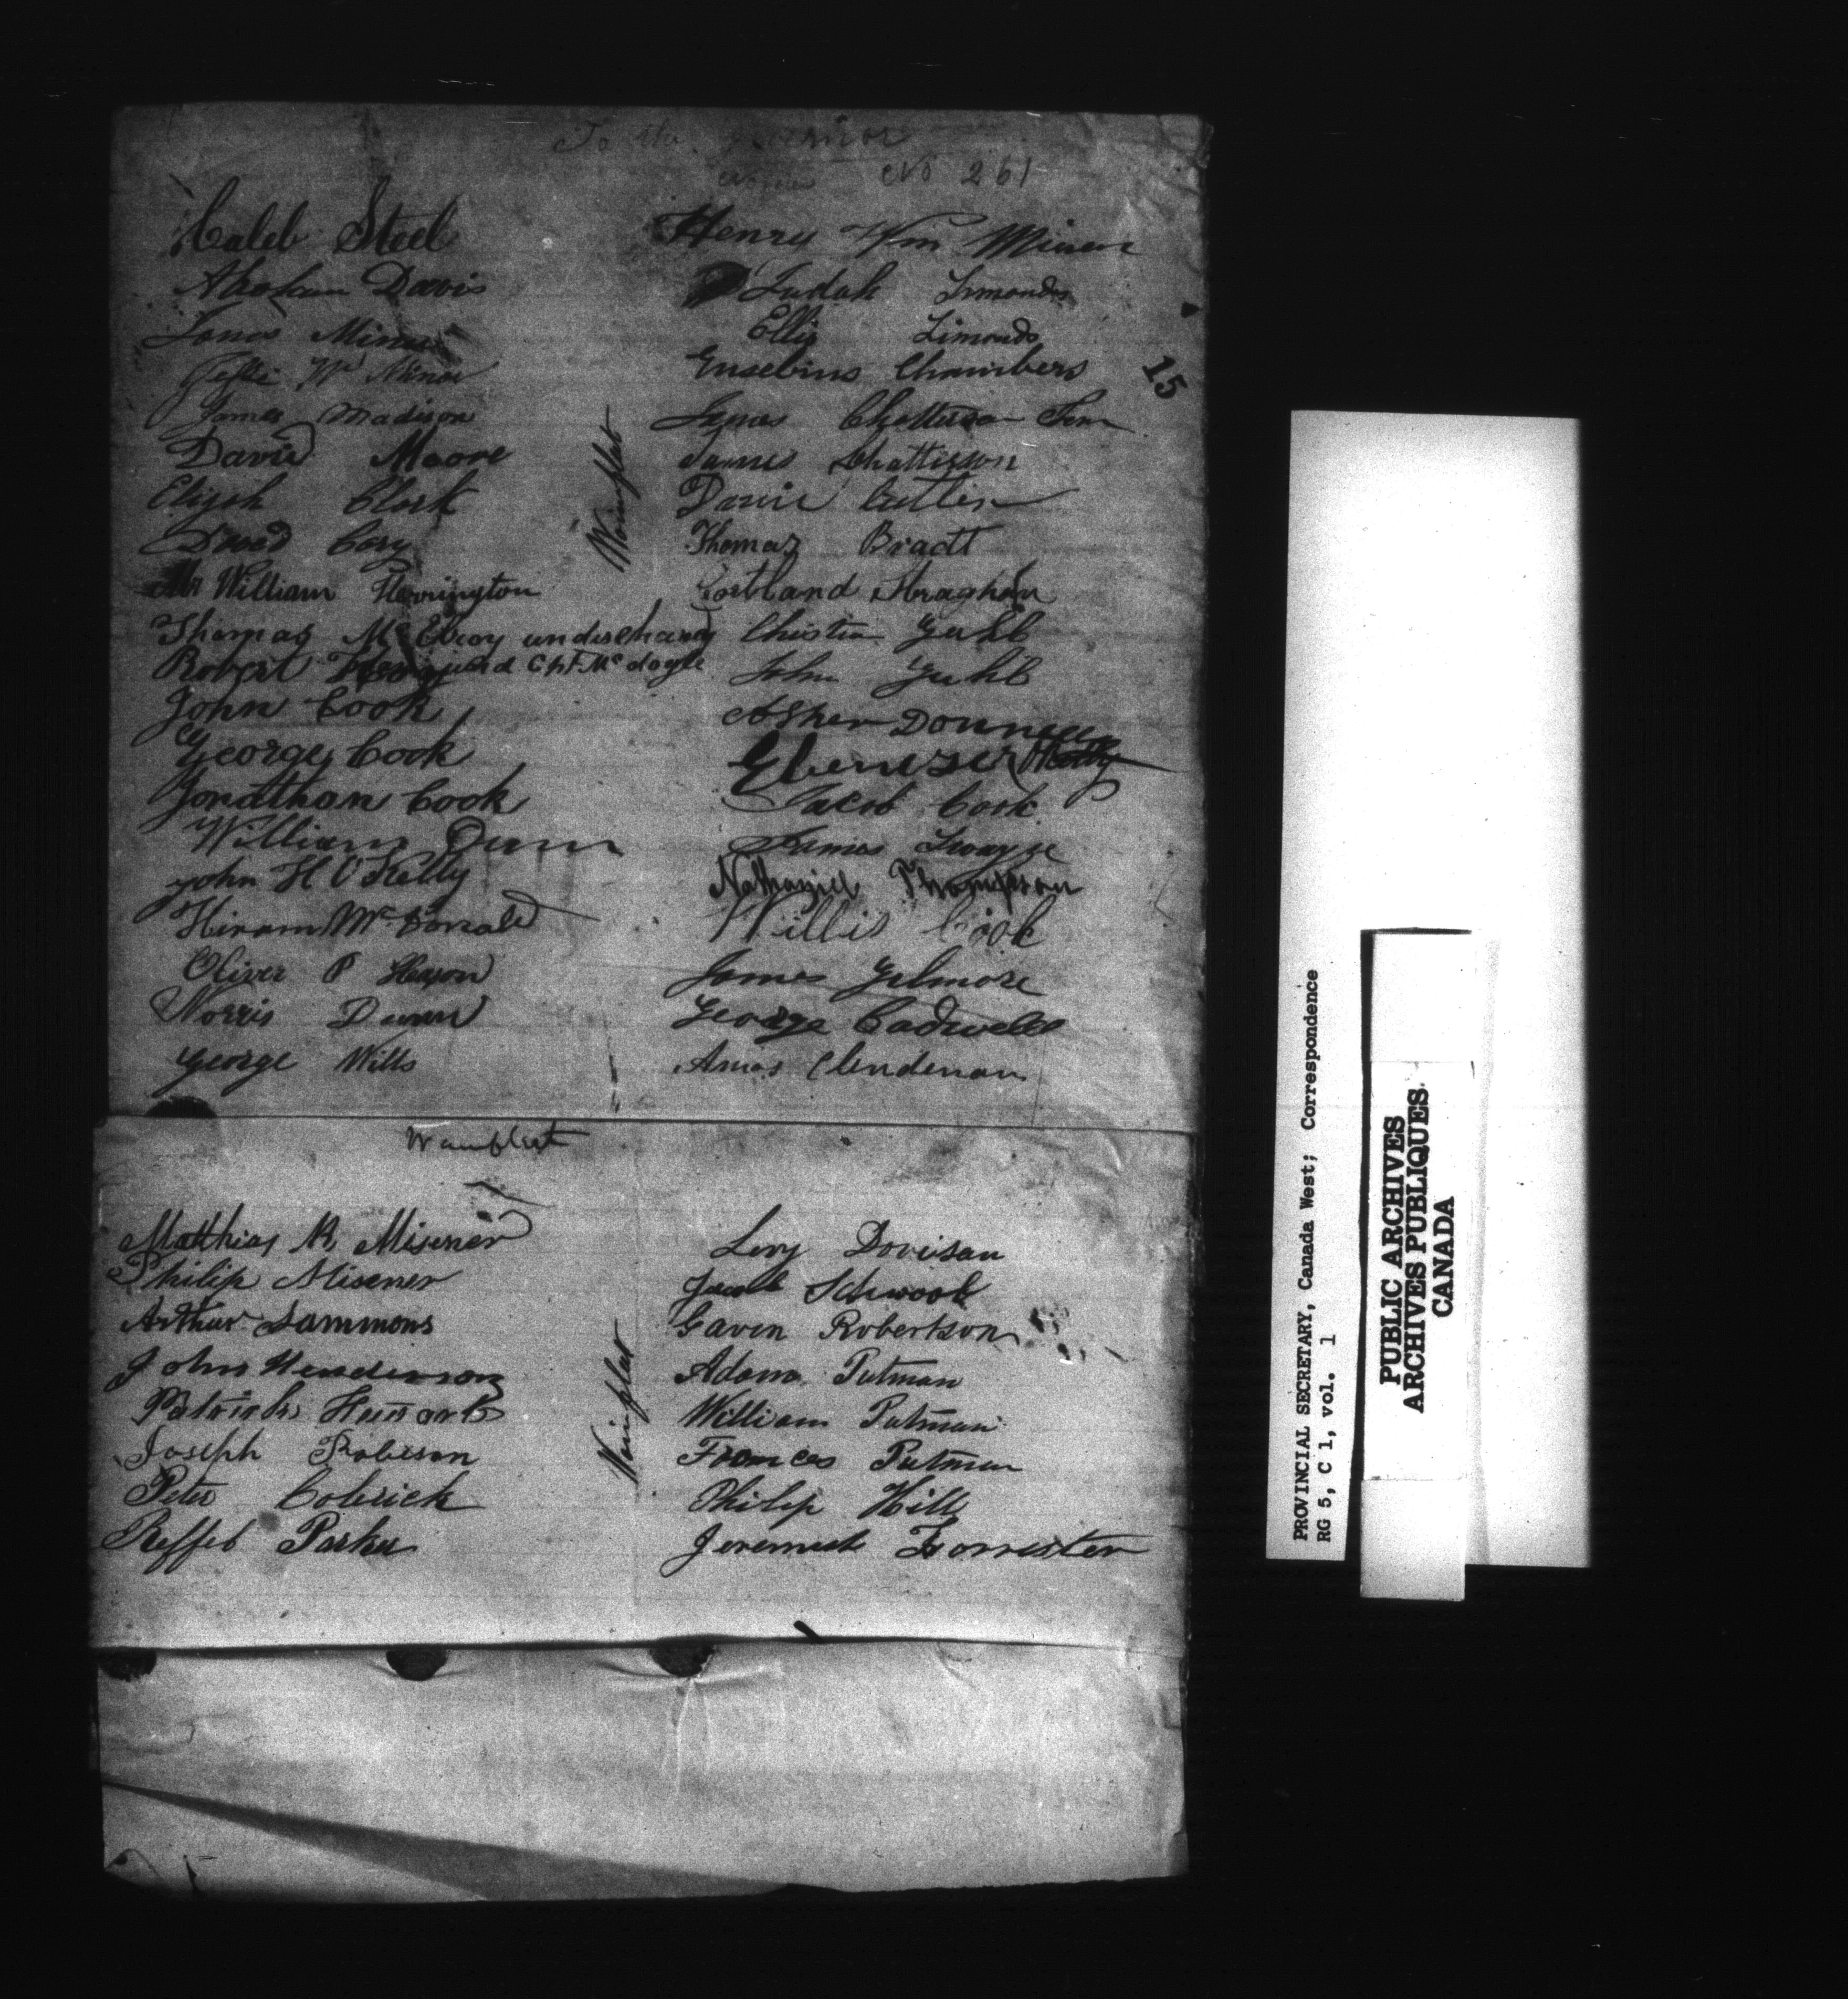 To the governor
No 261
15
Caleb Steel
Abraham Davis
Jonas Minor
Jesse W Minor
James Madison
David Moore
Elijah Clark
David Cary
Mr William Herrington
Thomas McElroy undischared
Robert and Cht McdogLe
John Cook
George Cook
Jonathan Cook
William Dunn
John H O Kelly
Hiram McDonald
Oliver P
Norris Dunn
George Wills
Wainflet
Henry Wm
Judah Simonds
Ellis Simonds
Eusebius Chambers
James Chatterson
James Chatterson
Cutler
Thomas Bradt
Cortland Straghan
Christian
John
Asher Donnelly
Ebenezer
Jacob Cook
James Swayze
Nathaniel Thompson
Willis Cook
James Gilmore
George Cadwell
Amos Clendenan
Wainfleet
Matthias M Misener
Philip Misener
Arthur Sammons
John Henderson
Patrick
Joseph Robison
Peter Cobrick
Parker
Wainflet
Levy Davisan
Jacob Schwoob
Gaven Robertson
Adam Putman
William Putman
Frances Putman
Philip Hill
Jeremiah Forrester
PROVINCIAL SECRETARY, Canada West; Correspondence
RG 5, C 1, vol. 1
PUBLIC ARCHIVES
ARCHIVES PUBLIQUES
CANADA